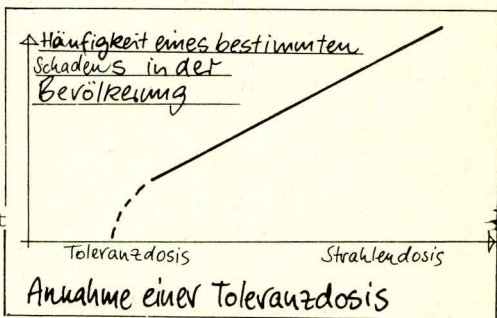 Häufigkeit eines bestimmten
Schadens in der
Bevölkerung
t
Toleranzdosis Strahlendosis
Annahme einer Toleranzdosis